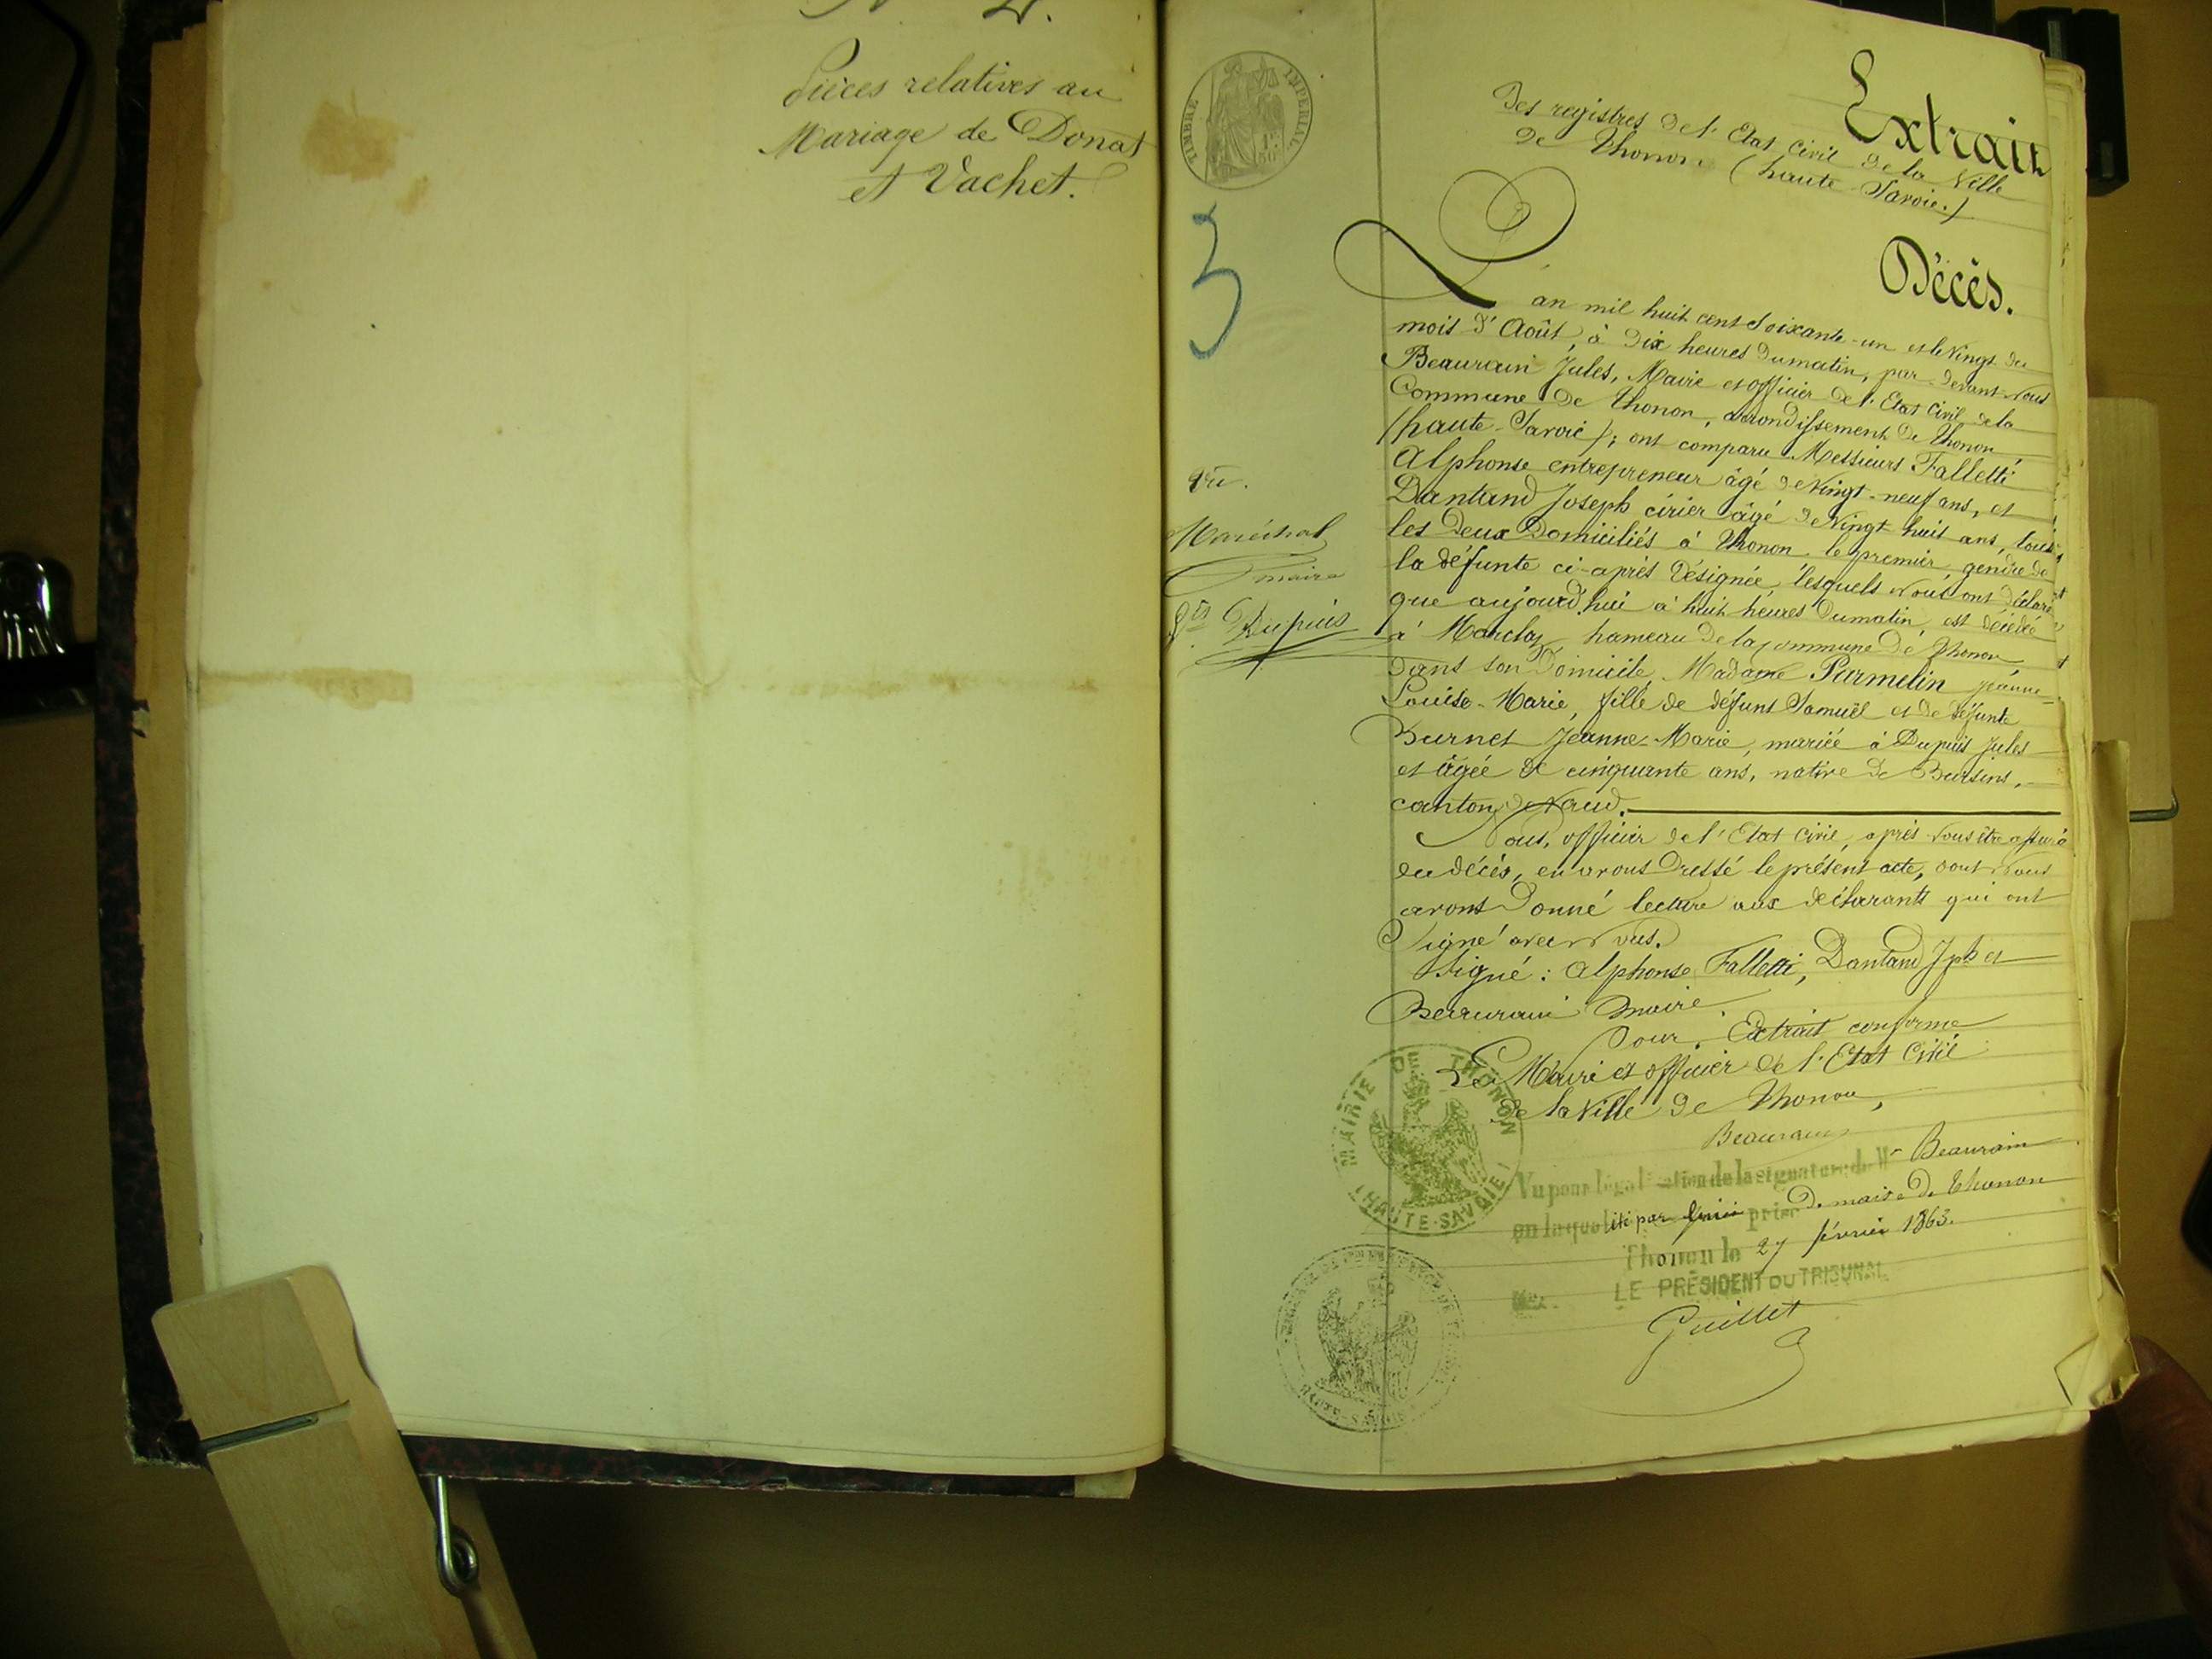 Pièces relatives au
Mariage de Donat
et Vachet.
TIMBRE IMPERIAL
1F
50
3
Vu.
Maréchal
maire
Dupuis
Extrait
Des registres de l'Etat Civil de la Ville
de Thonon (haute-Savoie.)
Décès.
L'an mil huit cent soixante-un et le Vingt du
mois d'Août, à dix heures du matin, par devant Nous
Beaurain Jules, Maire et officier de l'Etat Civil de la
Commune de Thonon, arrondissement de Thonon
(haute-Savoie); ont comparu Messieurs Falletti
Alphonse entrepreneur âgé de Vingt-neuf ans, et
Dantand Joseph cirier âgé de Vingt huit ans, tous
les deux Domiciliés à Thonon le premier gendre de
la défunte ci-après Désignée, lesquels Nous ont déclaré
que aujourd'hui à huit heures du matin, est décédée
à Marclaz hameau de la commune de Thonon
dans son Domicile, Madame Parmelin Jeanne-
Louise-Marie, fille de défunt Samuël et de défunte
Burnet Jeanne-Marie, mariée à Dupuis Jules
et âgée de cinquante ans, native de Bursins,
canton de Vaud.
Nous, officier de l'Etat Civil, après Nous être assuré
du décès, en avons Dressé le présent acte, dont Nous
avons Donné lecture aux déclarants qui ont
Signé avec Nous.
Signé: Alphonse Falletti, Dantand Jph et
Beaurain maire.
Pour Extrait conforme
Le Maire et officier de l'Etat Civil
de la Ville de Thonon,
Beaurain
MAIRIE DE THONON
(HAUTE-SAVOIE)
Vu pour légalisation de la signature de Mr Beaurain
en la qualité par lui prise De maire De Thonon
Thonon le 27 février 1863.
LE PRÉSIDENT DU TRIBUNAL
Guillet
HAUTE-SAVOIE